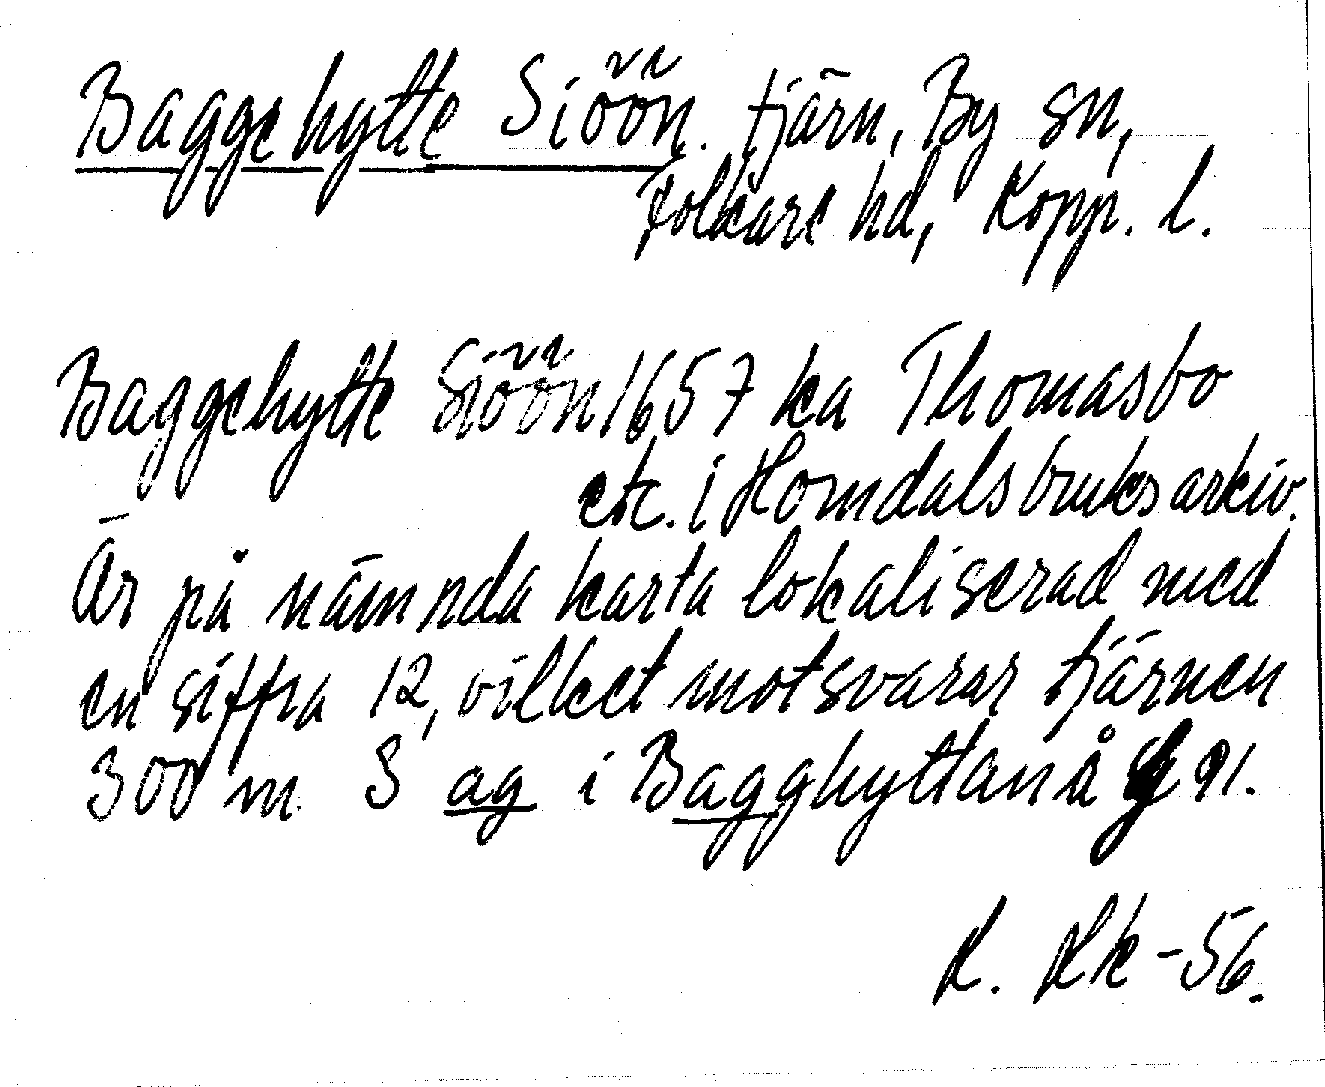 Baggehytte Siöön. tjärn, By sn,
Folkare hd, Kopp. l.
Baggehytte Siöön 1657 ka Thomasbo
etc. i Horndals bruks arkiv.
Är på nämnda karta lokaliserad med
en siffra 12, vilket motsvarar tjärnen
300 m S ag i Bagghyttan å 91.
-56.